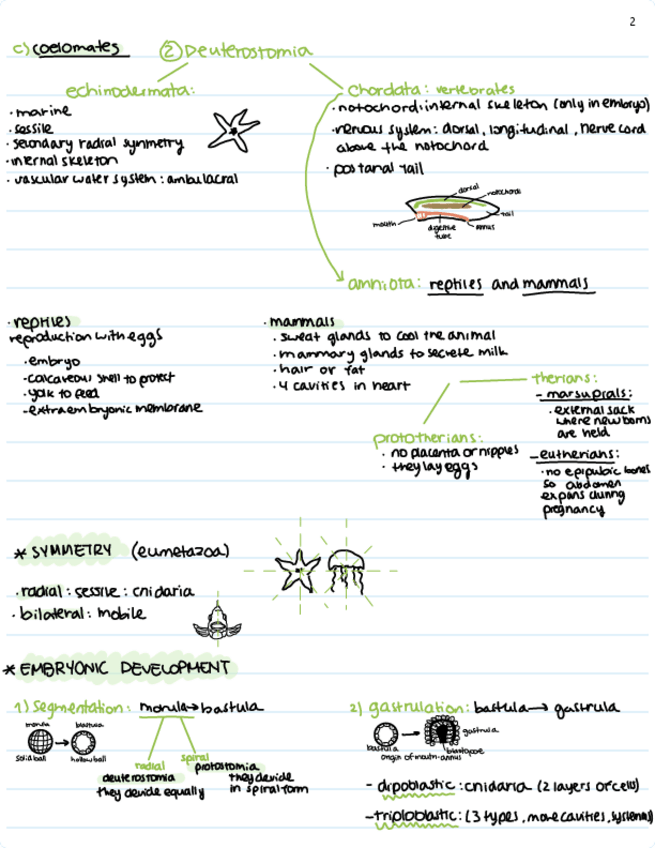 2
c) coelomates ② Deuterostomia
echinodermata:
· marine
· sessile
· secundary radial symmetry
· internal skeleton
· vascular water system : ambulacral
chordata : vertebrates
· notochord: internal skeleton (only in embryo)
· nervous system : dorsal, longitudinal, nerve cord
above the notochord
· postanal tail
dorsal
notochord
tail
mouth
digestive
tube
annus
amniota: reptiles and mammals
· reptiles
reproduction with eggs
· embryo
· calcareous shell to protect
· yolk to feed
· extraembryonic membrane
· mammals
· sweat glands to cool the animal
· mammary glands to secrete milk
· hair or fat
· 4 cavities in heart
prototherians:
· no placenta or nipples
· they lay eggs
therians:
- marsuprals:
· external sack
where newborns
are held
- eutherians:
· no epipubic bones
so abdomen
expans during
pregnancy
* SYMMETRY (eumetazoa)
· radial : sessile : cnidaria
· bilateral : mobile
* EMBRYONIC DEVELOPMENT
1) Segmentation: morula → bastula
morula
blastula
solid ball
hollow ball
radial
deuterostomia
they devide equally
spiral
protostomia
they devide
in spiral form
2) gastrulation: bastula → gastrula
bastula
gastrula
blastopore
origin of mouth-annus
- dipoblastic : cnidaria (2 layers of cells)
- triploblastic : (3 types, more cavities, systems)